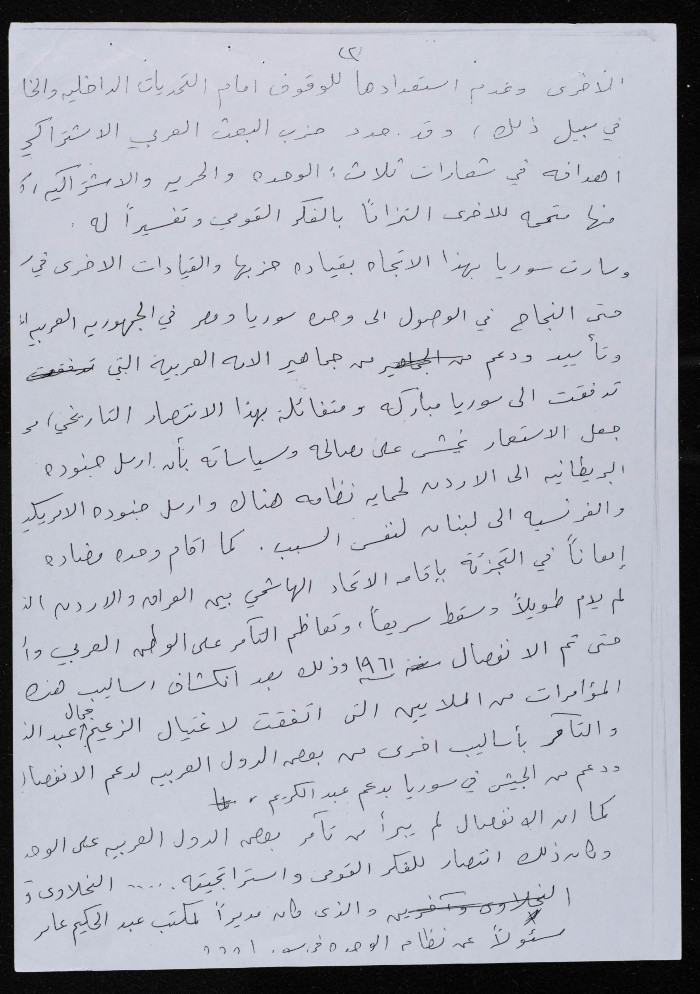 (٢)
الأخرى وعدم استعدادها للوقوف امام التحديات الداخليه والخا
في سبيل ذلك، وقد حدد حزب البعث العربي الاشتراكي
اهدافه في شعارات ثلاث: الوحده والحريه والاشتراكيه
منها متممه للاخرى التزاناً بالفكر القومي وتفسيراً له.
وسارت سوريا بهذا الاتجاه بقياده حزبها والقيادات الاخرى في
حتى النجاح في الوصول الى وحده سوريا ومصر في الجمهوريه العربيه
وتأييد ودعم من الجماهير من جماهير الامه العربية التي تدفقت
تدفقت الى سوريا مباركه ومتفائلة بهذا الانتصار التاريخي،
جعل الاستعمار يخشى على مصالحه وسياساته بأن ارسل جنوده
البريطانيه الى الاردن لحمايه نظامه هناك وارسل جنوده الامريكيه
والفرنسيه الى لبنان لنفس السبب. كما اقام وحده مضاده
إمعاناً في التجزئة بإقامه الاتحاد الهاشمي بين العراق والاردن
لم يدم طويلاً وسقط سريعاً، وتعاظم التآمر على الوطن العربي
حتى تم الانفصال سنة ١٩٦١ وذلك بعد انكشاف اساليب هذه
المؤامرات من الملايين التي اتفقت لاغتيال الزعيم جمال عبد
والتآمر بأساليب اخرى من بعض الدول العربيه لدعم الانفصال
ودعم من الجيش في سوريا بدعم عبد الكريم،
كما ان الانفصال لم يبرأ من تآمر بعض الدول العربيه على الوحد
وكان ذلك انتصار للفكر القومي واستراتجيته ..... النحلاوي
النحلاوي وآخرين والذي كان مديراً لمكتب عبد الحكيم عامر
مسئولاً عن نظام الوحده في